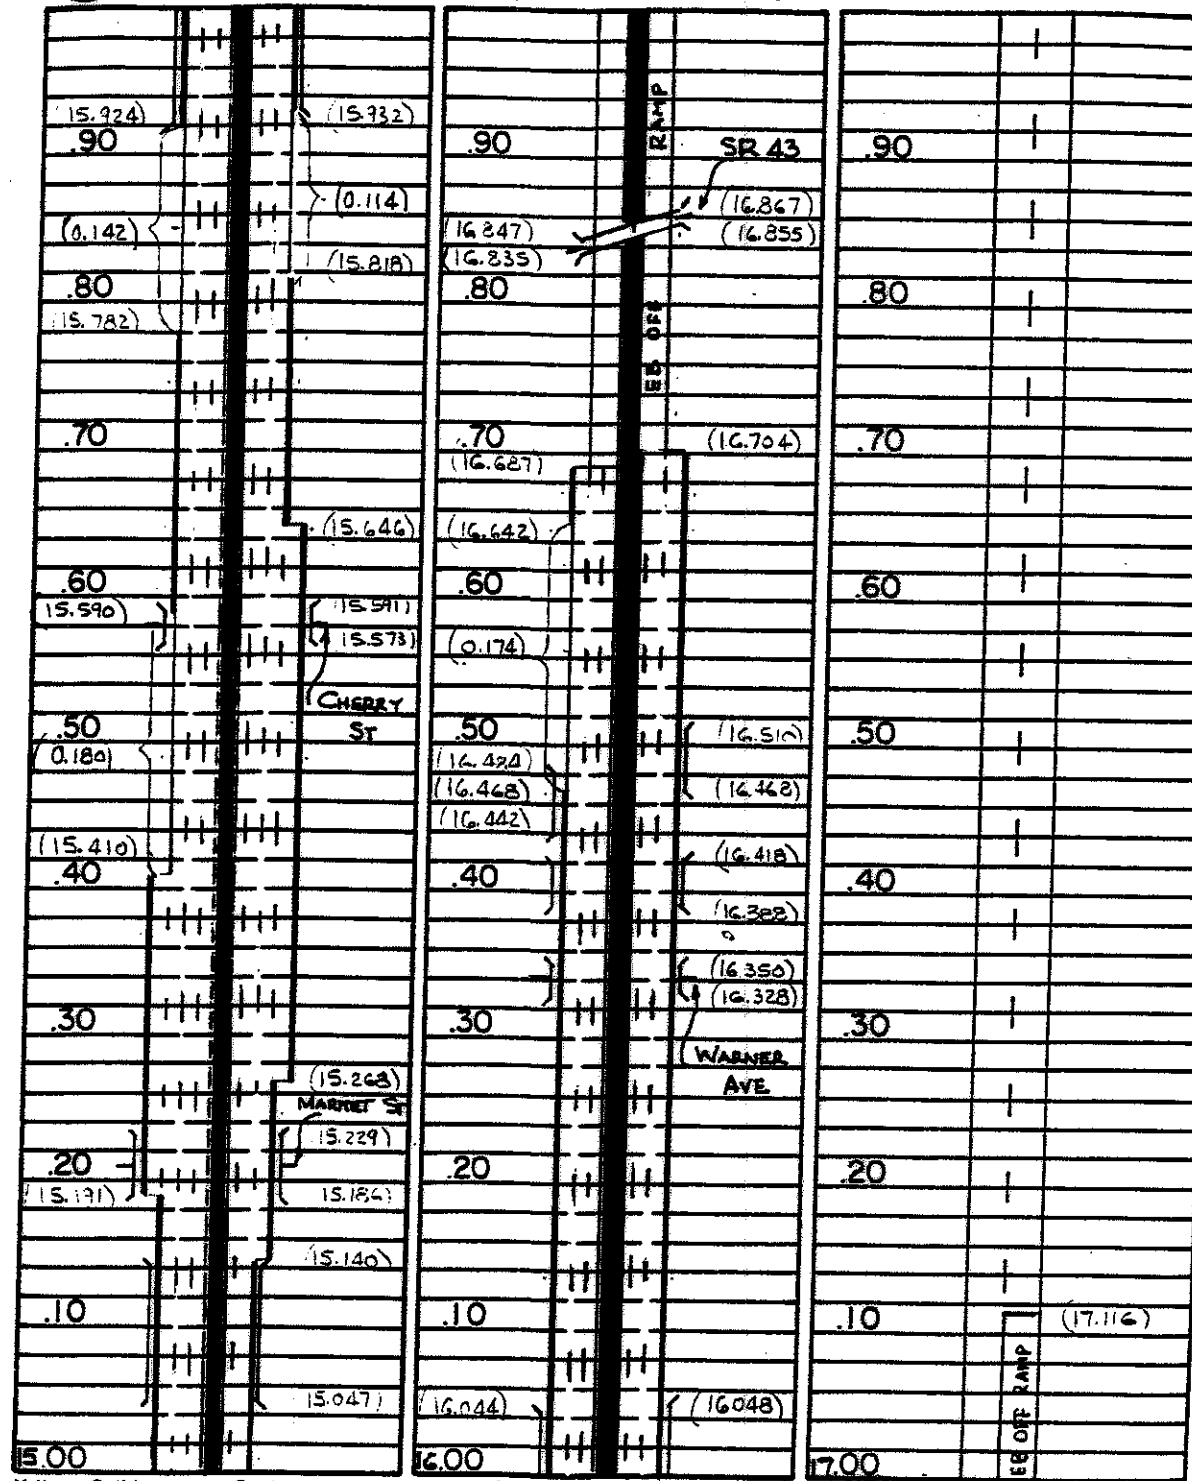 (15.924)
(15.932)
.90
(0.114)
(0.142)
(15.818)
.80
(15.782)
.70
(15.646)
.60
(15.590)
(15.591)
15.573)
CHERRY
ST
.50
(0.180)
(15.410)
.40
.30
(15.268)
MARKET ST
15.229)
.20
(15.191)
15.186)
(15.140)
.10
15.047)
15.00
RAMP
.90
SR 43
(16.867)
(16.847)
(16.855)
(16.835)
.80
EB OFF
.70
(16.704)
(16.687)
(16.642)
.60
(0.174)
.50
(16.510)
(16.424)
(16.468)
(16.468)
(16.442)
(16.418)
.40
(16.388)
(16.350)
(16.328)
.30
WARNER
AVE
.20
.10
(16.044)
(16048)
16.00
.90
.80
.70
.60
.50
.40
.30
.20
.10
(17.116)
EB OFF RAMP
17.00